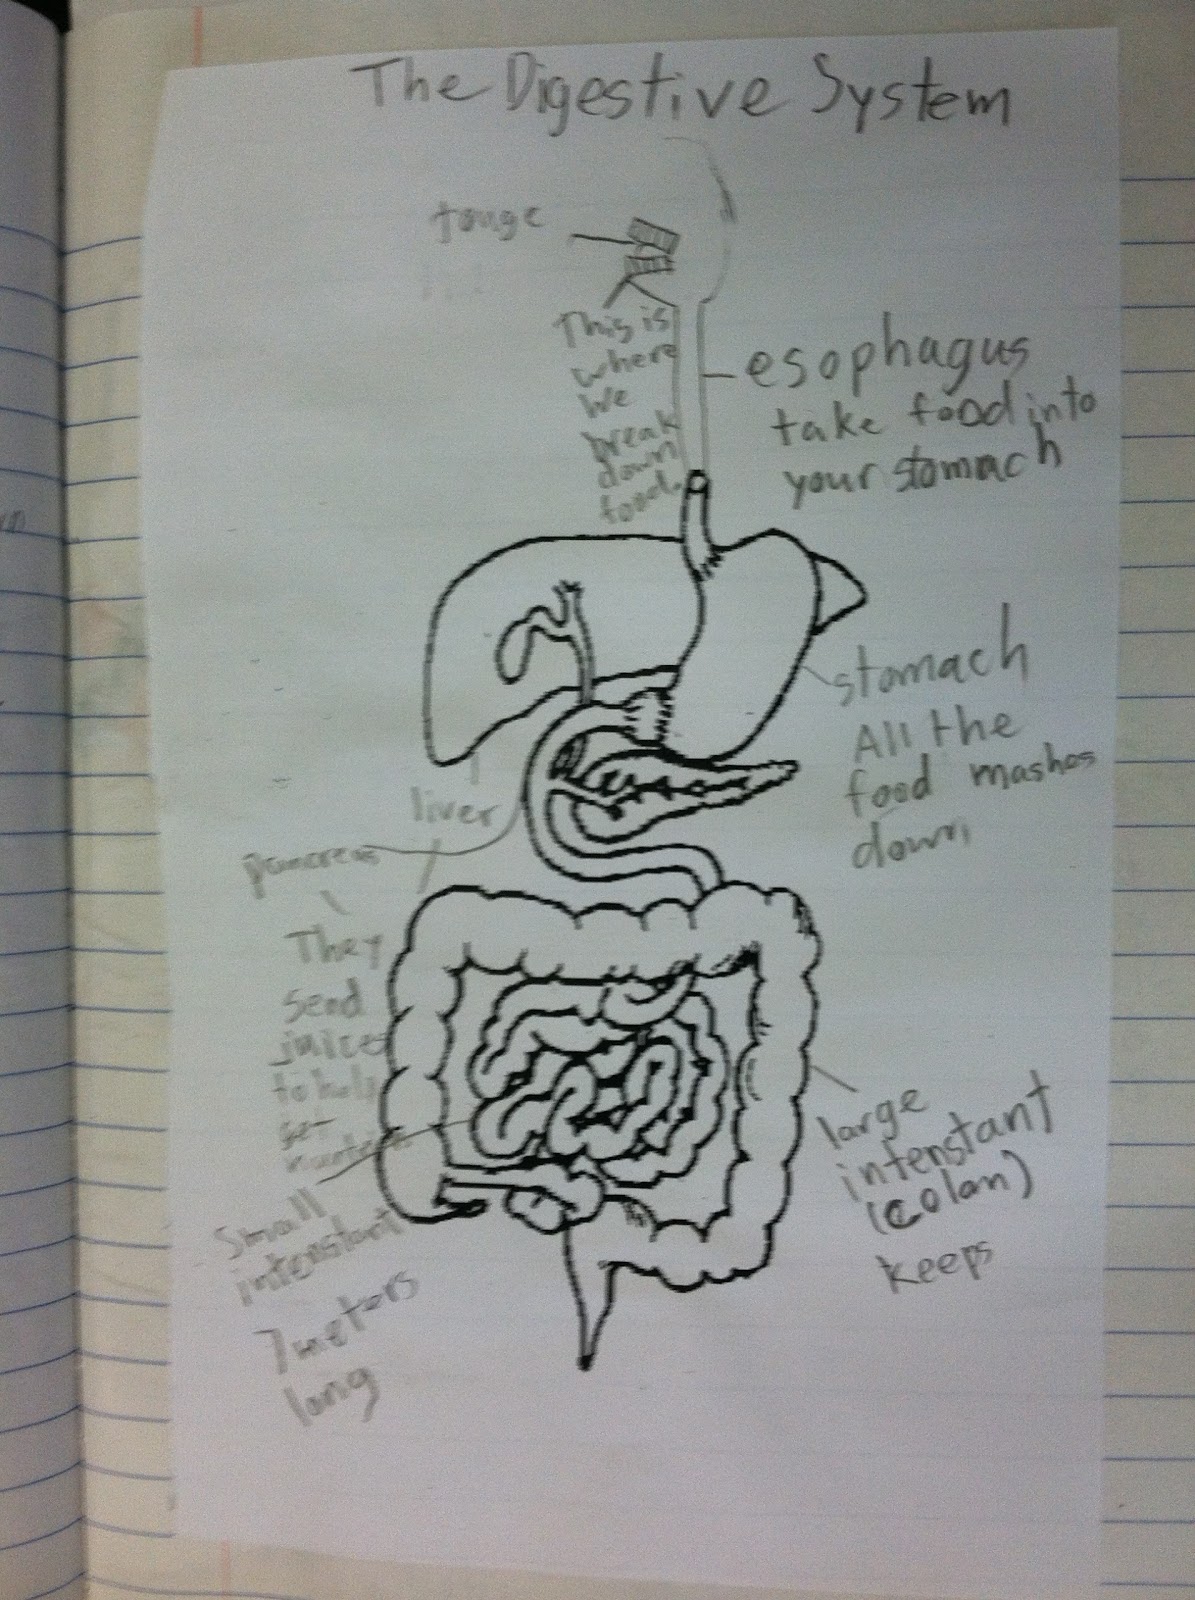 The Digestive System
touge
This is
where
we
break
down
food.
esophagus
take food into
your stomach
stomach
All the
food mashes
down
liver
pancreas
They
send
juices
to help
get
large
intenstant
(colan)
keeps
Small
intenstant
7 meters
long